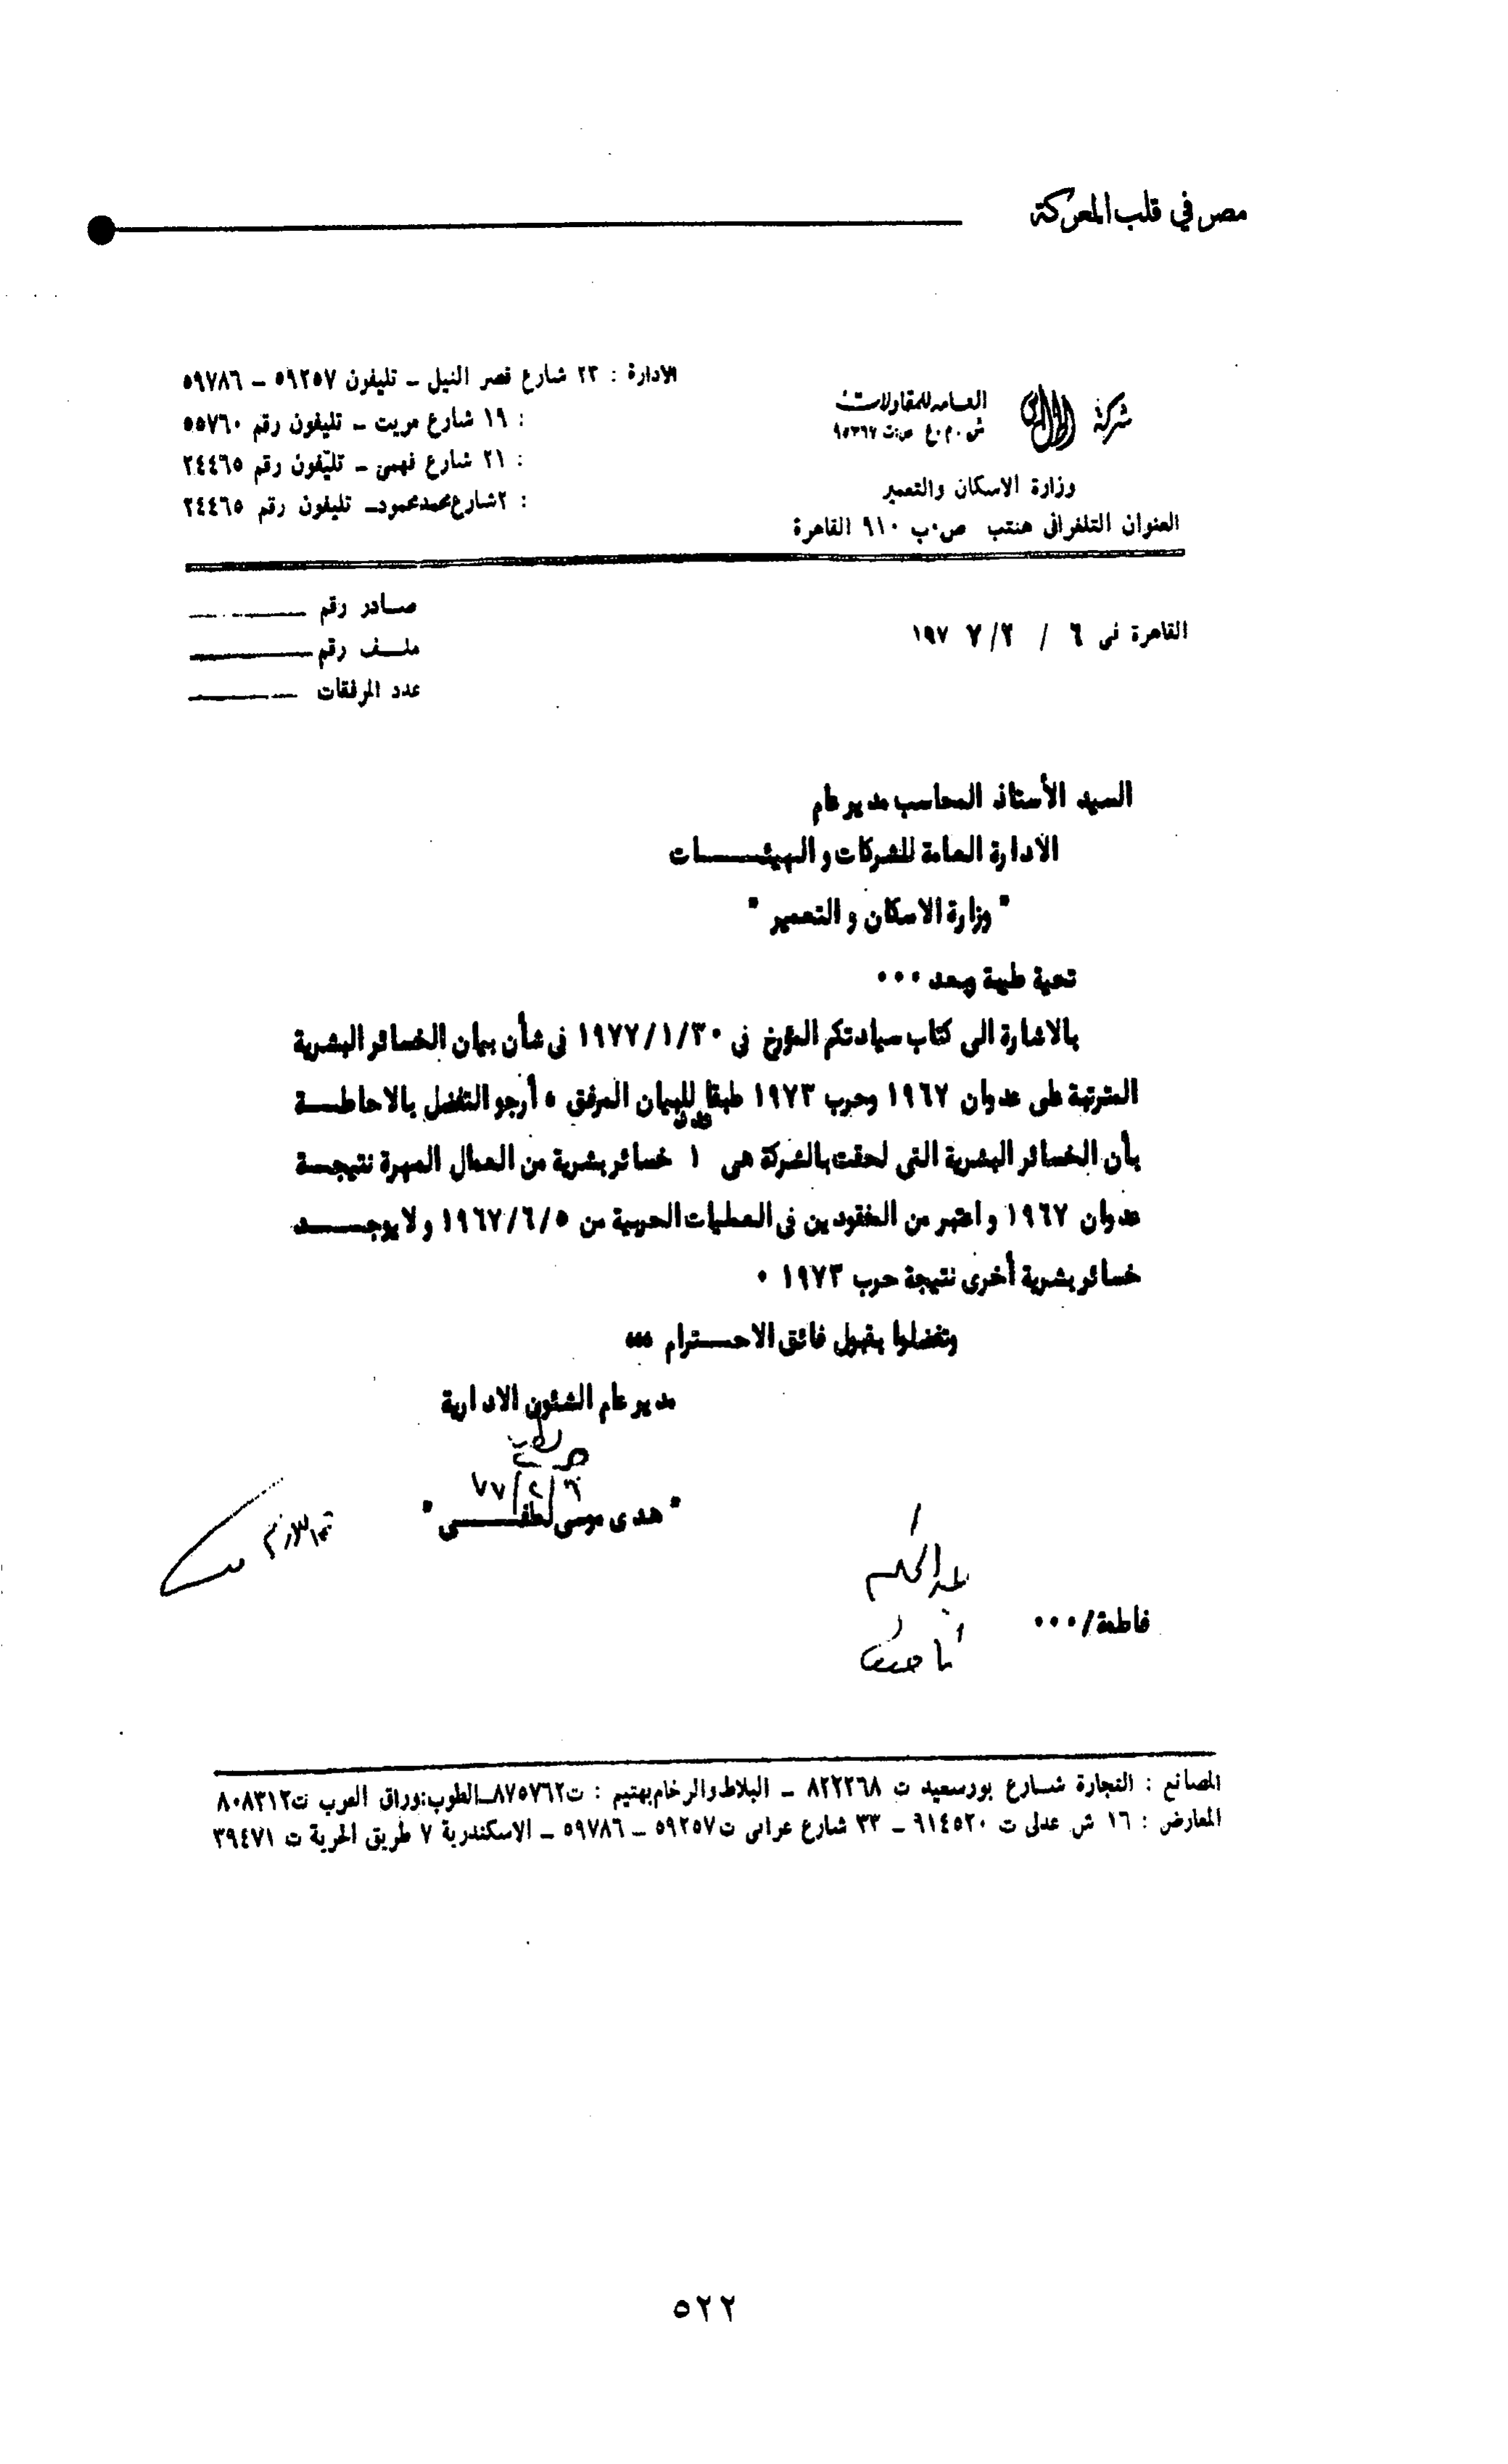 مصر في قلب المعركة
شركة
العامة للمقاولات
ش.م.ع س.ت ٩٥٣٦٧
وزارة الاسكان والتعمير
العنوان التلغرافى هنتب ص.ب ٩١٠ القاهرة
الادارة : ٢٣ شارع قصر النيل - تليفون ٥٩٢٥٧ - ٥٩٧٨٦
: ١٩ شارع مريت - تليفون رقم ٥٥٧٦٠
: ٢١ شارع فهمى - تليفون رقم ٢٤٤٦٥
: ٢ شارع محمد محمود - تليفون رقم ٢٤٤٦٥
القاهرة فى ٦ / ٢ / ١٩٧٧
صادر رقم
ملف رقم
عدد المرفقات
السيد الأستاذ المحاسب مدير عام
الادارة العامة للشركات والهيئات
" وزارة الاسكان والتعمير "
تحية طيبة وبعد ٠٠٠
بالاشارة الى كتاب سيادتكم المؤرخ فى ١٩٧٧/١/٣٠ فى شأن بيان الخسائر البشرية
المترتبة على عدوان ١٩٦٧ وحرب ١٩٧٣ طبقا للبيان المرفق ، أرجو التفضل بالاحاطة
بأن الخسائر البشرية التى لحقت بالشركة هى عدد ١ خسائر بشرية من العمال المهرة نتيجة
عدوان ١٩٦٧ واعتبر من المفقودين فى العمليات الحربية من ١٩٦٧/٦/٥ ولا يوجد
خسائر بشرية أخرى نتيجة حرب ١٩٧٣ ٠
وتفضلوا بقبول فائق الاحترام ،،،
مدير عام الشئون الادارية
٧٧/٢/٦
" هدى موسى لطفى "
عبد الحكم
فاطمة/٠٠٠
المصانع : النجارة شارع بورسعيد ت ٨٢٢٢٦٨ - البلاط والرخام بهتيم : ت ٨٧٥٧٦٢ - الطوب : وراق العرب ت ٨٠٨٣١٢
المعارض : ١٦ ش عدلى ت ٩١٤٥٢٠ - ٣٣ شارع عرابى ت ٥٩٢٥٧ - ٥٩٧٨٦ - الاسكندرية ٧ طريق الحرية ت ٣٩٤٧١
٥٢٢